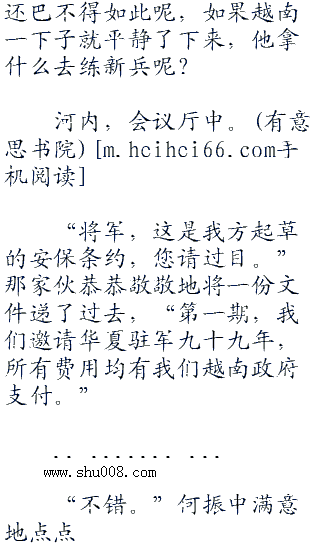 还巴不得如此呢，如果越南
一下子就平静了下来，他拿
什么去练新兵呢？
河内，会议厅中。(有意
思书院)[m.hcihci66.com手
机阅读]
“将军，这是我方起草
的安保条约，您请过目。”
那家伙恭恭敬敬地将一份文
件递了过去，“第一期，我
们邀请华夏驻军九十九年，
所有费用均有我们越南政府
支付。”
.. ....... ...
www.shu008.com
“不错。”何振中满意
地点点